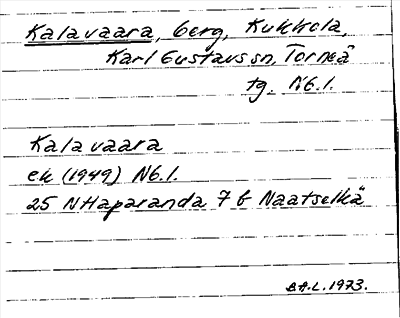 Kalavaara, berg, Kukkola,
Karl Gustavs sn, Torneå
tg. N6.1.
Kalavaara
ek (1949) N6.1.
25 N Haparanda 7 b Naatselkä
B.A.L. 1973.